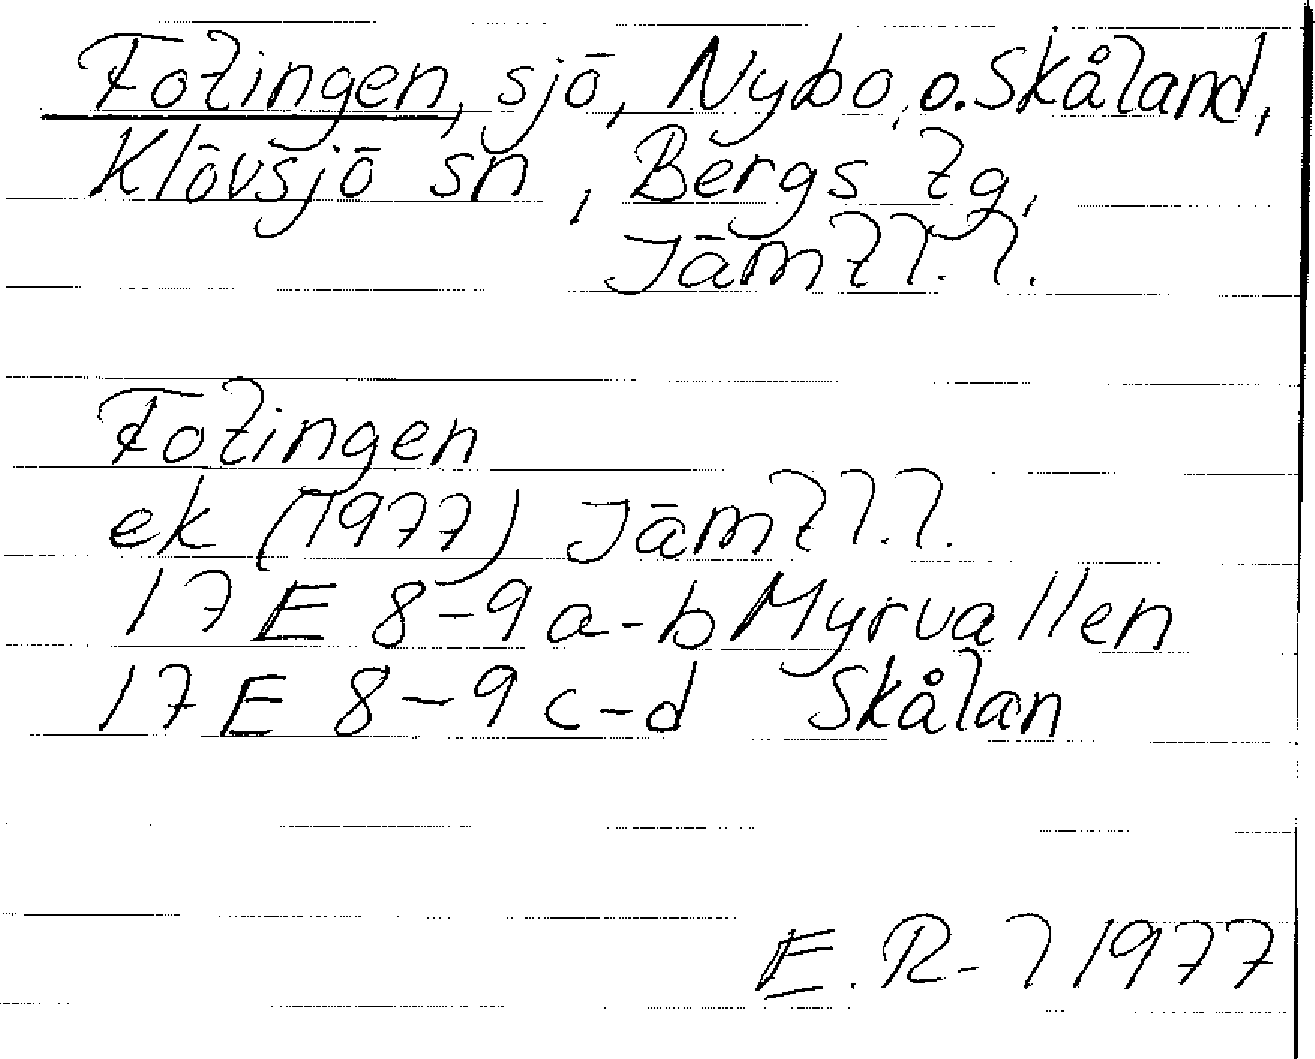 Fotingen, sjö, Nybo, o. Skåland,
Klövsjö sn, Bergs tg,
Jämtl.l.
Fotingen
ek (1977) Jämtl.l.
17 E 8-9 a-b Myrvallen
17 E 8-9 c-d Skålan
E. R-l 1977